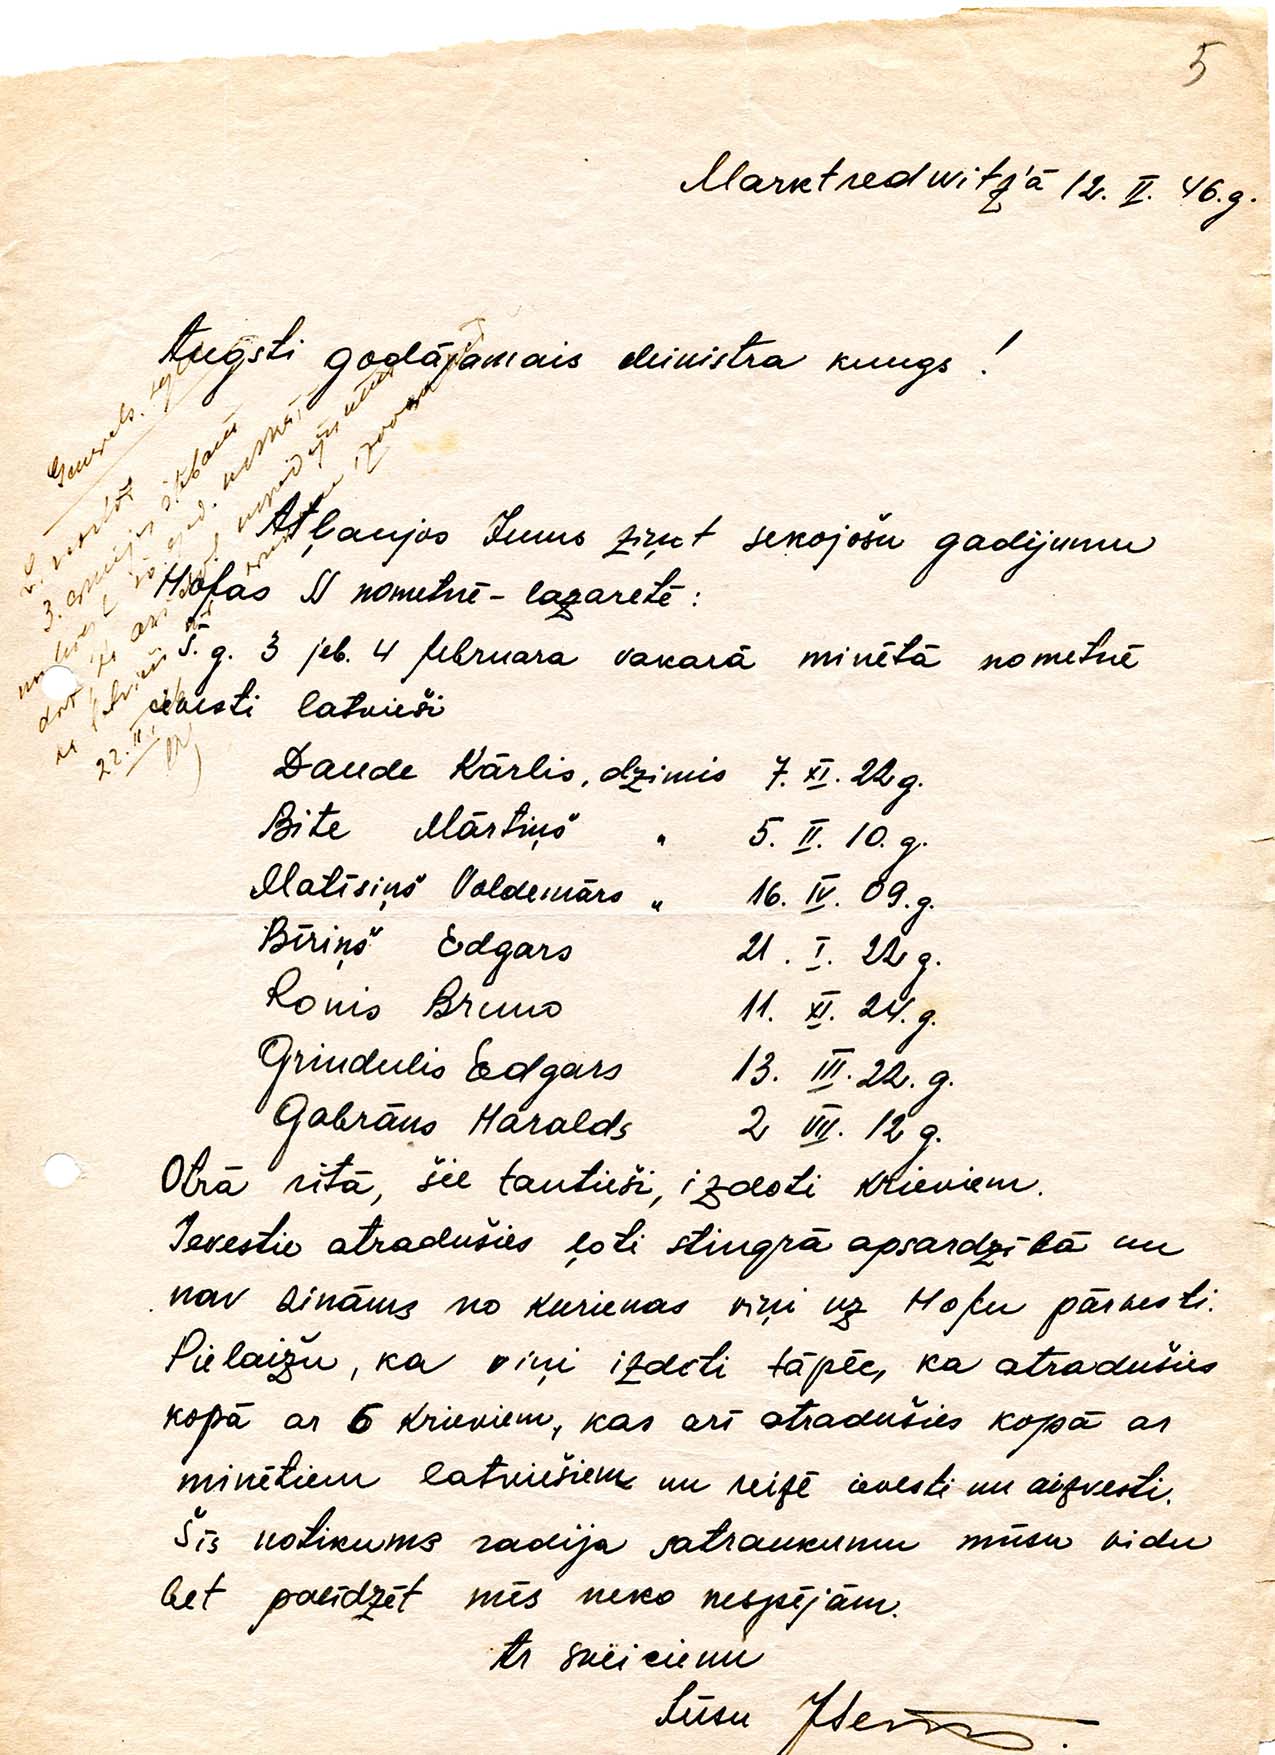 5
Marktredwitz'ā 12. II. 46.g.
Augsti godājamais Ministra kungs!
Atļaujos Jums ziņot sekojošu gadījumu
Hofas nometnē - lazaretē:
Š. g. 3 jeb. 4 februara vakarā minētā nometnē
ievesti latvieši
Daude Kārlis, dzimis 7. XI. 22 g.
Bite Mārtiņš " 5. II. 10. g.
Matīsiņš Voldemārs " 16. IV. 09. g.
Bīriņš Edgars 21. I. 22 g.
Ronis Bruno 11. XI. 24. g.
Grindulis Edgars 13. III. 22. g.
Gabrāns Haralds 2 VIII. 12 g.
Otrā rītā, šie tautieši, izdoti krieviem.
Ievestie atradušies ļoti stingrā apsardzībā un
nav zināms no kurienas viņi uz Hofu pārvesti.
Pielaižu, ka viņi izdoti tāpēc, ka atradušies
kopā ar 6 krieviem, kas arī atradušies kopā ar
minētiem latviešiem un reizē ievesti un aizvesti.
Šīs notikums radīja satraukumu mūsu vidū
bet palīdzēt mēs neko nespējām.
Ar sveicienu
Jūsu
22. II.